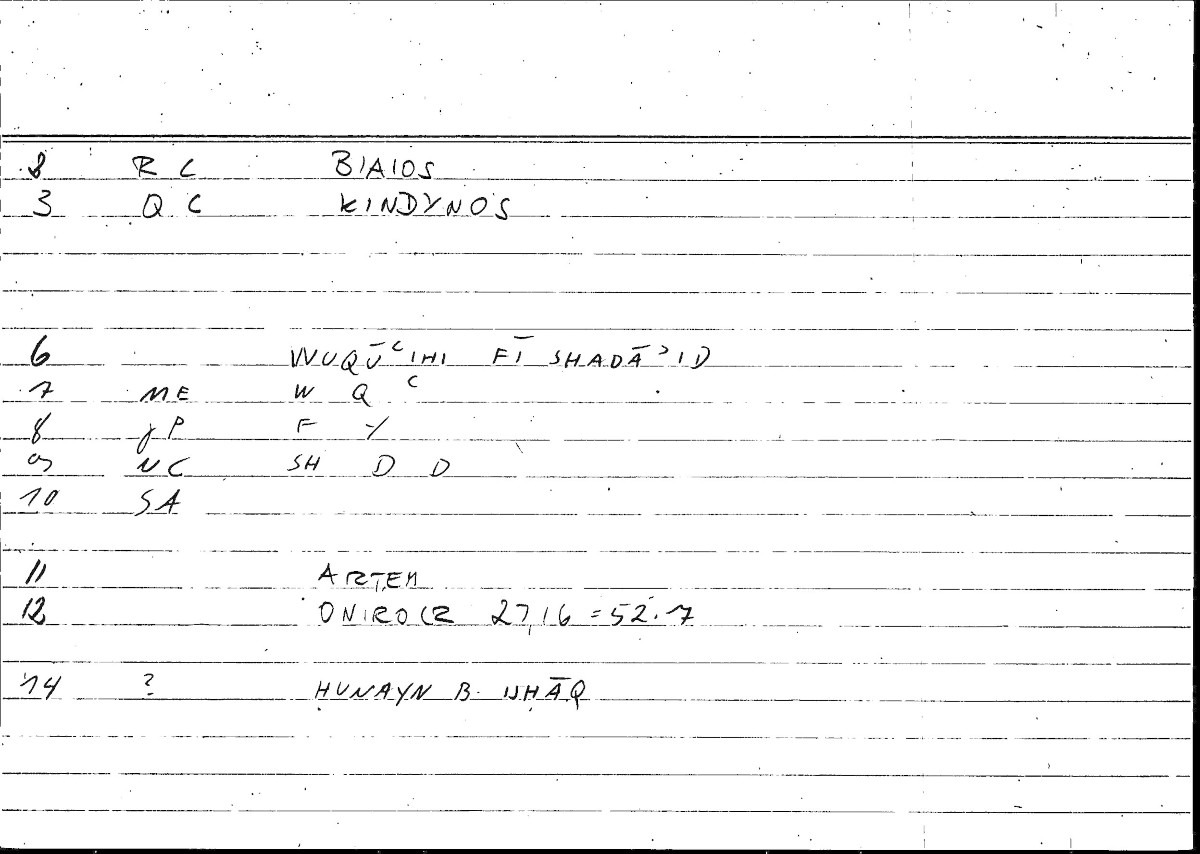 8 RC BIAIOS
3 QC KINDYNOS
6 WUQŪʿIHI FĪ SHADĀʾID
7 ME W Q ʿ
8 gP F Y
9 NC SH D D
10 SA
11 ARTEM
12 ONIROCR 27,16 = 52.7
14 ? ḤUNAYN B. ISḤĀQ